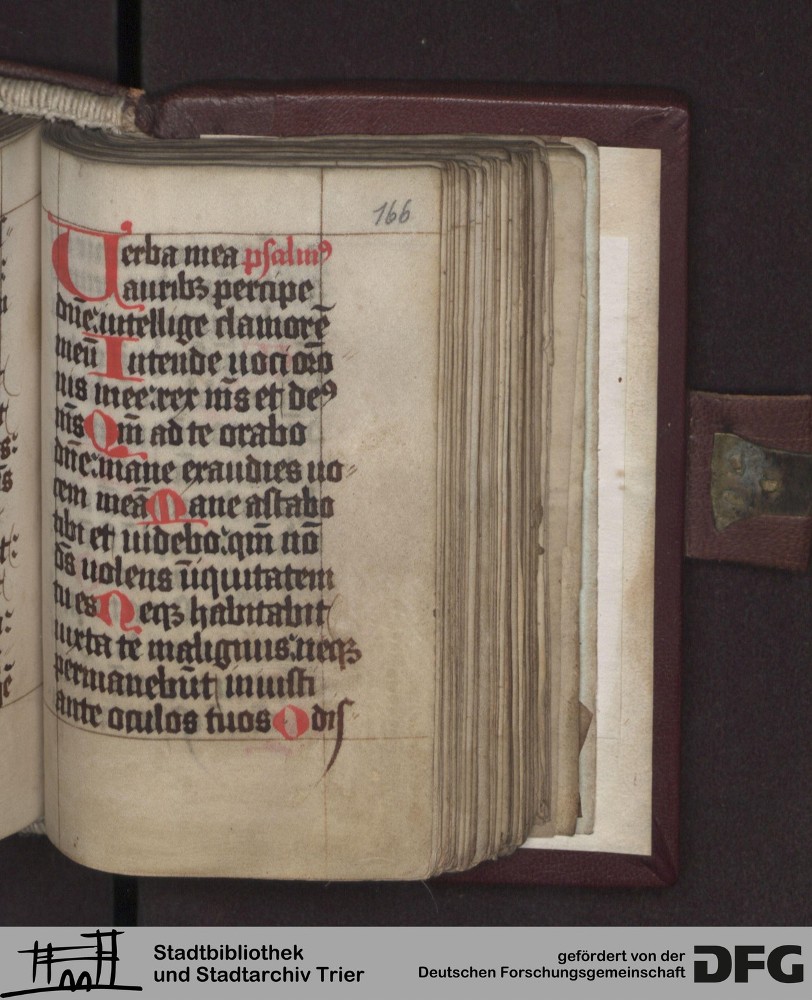 166
Uerba mea psalmꝰ
auribꝫ percipe
dn̄e: intellige clamorē
meū Intende uoci or̄o
nis mee: rex n̄s et deꝰ
m̄s Qm̄ ad te orabo
dn̄e: mane exaudies uo
cem meā Mane astabo
tibi et uidebo: qm̄ nō
ds̄ uolens īiquitatem
tu es Neqꝫ habitabit
iuxta te malignus: neqꝫ
permanebūt iniusti
ante oculos tuos Odis
Stadtbibliothek
und Stadtarchiv Trier
gefördert von der
Deutschen Forschungsgemeinschaft
DFG